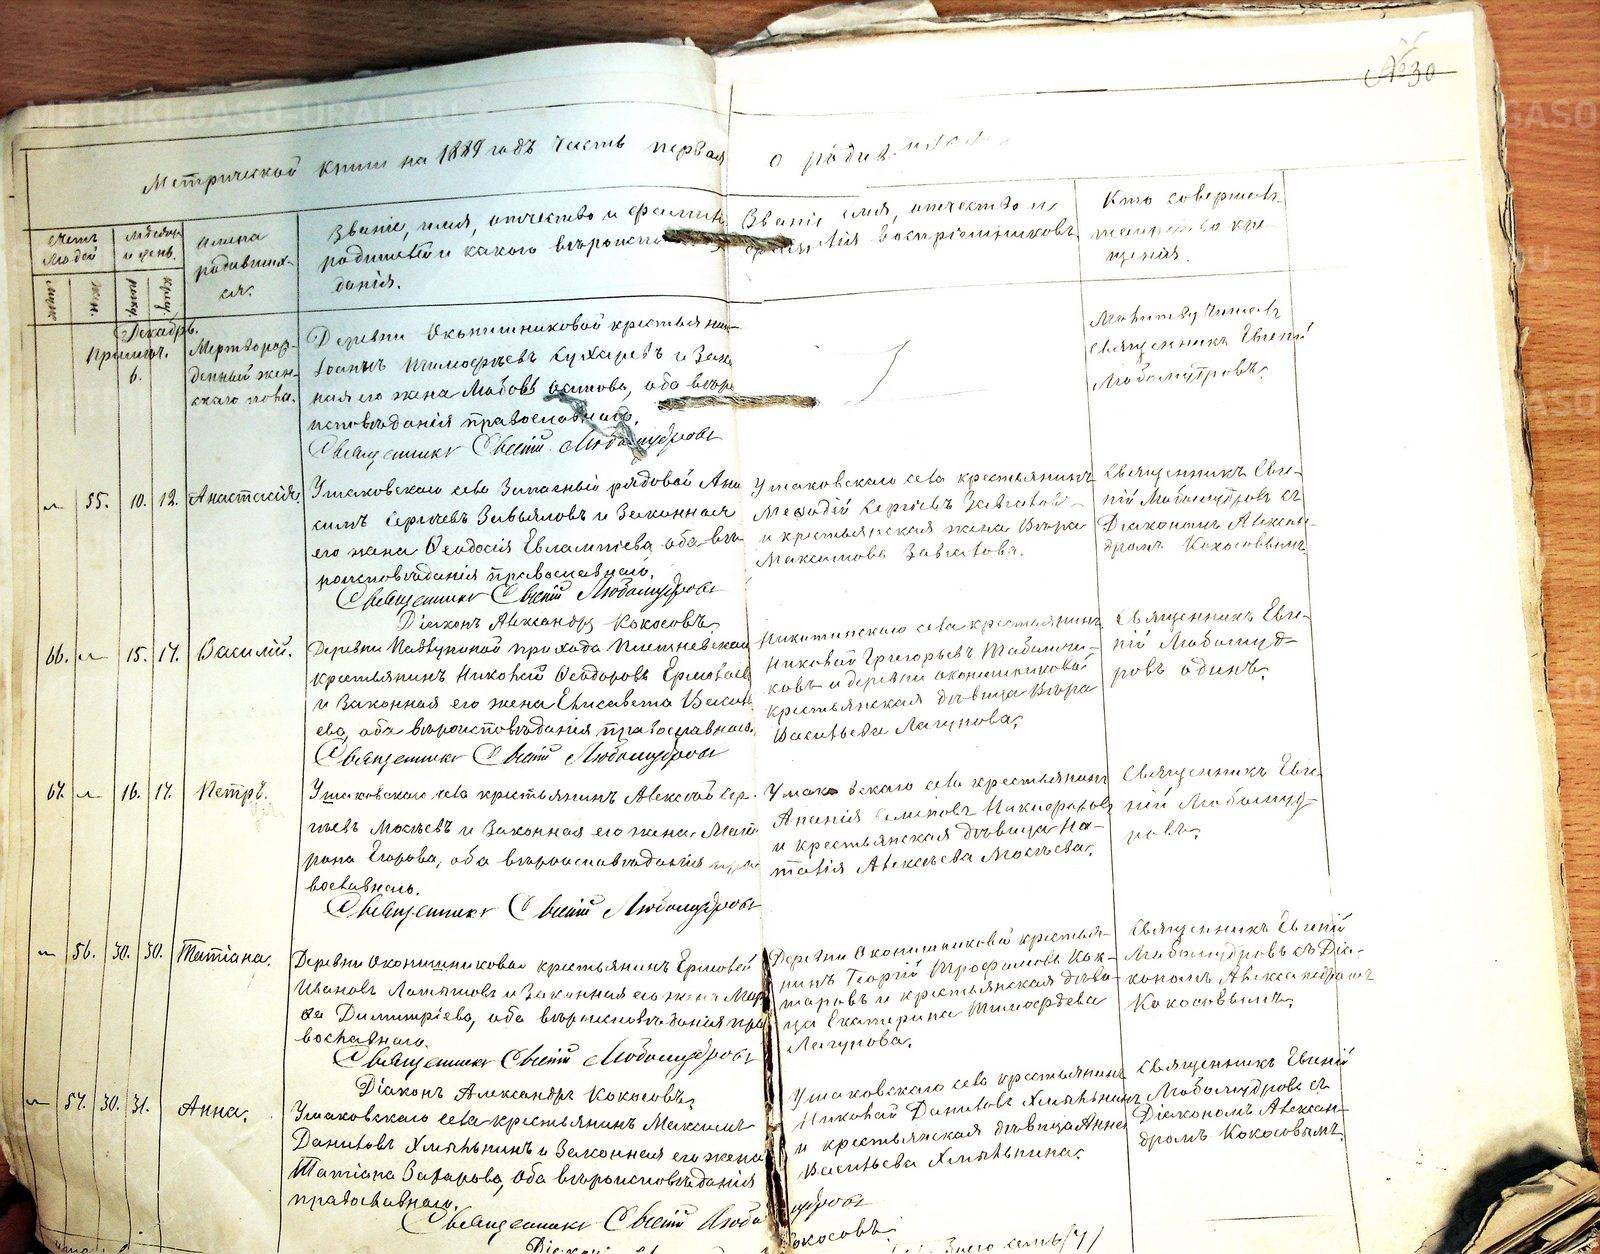 METRIKI.GASO-URAL.RU
№ 30
Метрической книги на 1889 годъ Часть первая о родившихся
Счетъ людей
Месяцъ и день.
имена родившихся.
Званіе, имя, отчество и фамилія
родителей и какого вероиспо
данія.
Званіе имя, отчество и
фамилія воспріемниковъ
Кто совершалъ
таинство кре
щенія.
Декабрь.
6.
Мертворож-
денный жен-
скаго пола.
Деревни Оконишниковой крестьянин
его жена Любовь Осипова, оба веро
исповеданія православнаго.
Священникъ Евгеній Любомудровъ
Молитву читалъ
Священникъ Евгеній
Любомудровъ.
55. 10. 12. Анастасія.
Ушаковскаго села Запасный рядовой Ана
симъ Сергеевъ Завьяловъ и Законная
его жена Феодосія Евлампіева, оба ве
роисповеданія православнаго.
Священникъ Евгеній Любомудровъ
Діаконъ Александръ Кокосовъ
Ушаковскаго села крестьянинъ
Мефодій Сергіевъ Завьяловъ
и крестьянская жена Вера
Максимова Завьялова.
Священникъ Евге-
ній Любомудровъ съ
Діакономъ Алексан-
дромъ Кокосовымъ
66. 15. 17. Василій.
крестьянинъ Николай Феодоровъ Ермолаев
и Законная его жена Елисавета Васил
ева, оба вероисповеданія православнаго.
Священникъ Евгеній Любомудровъ
Никитинскаго села крестьянинъ
Николай Григорьевъ
ковъ и деревни Оконишниковой
крестьянская девица Вера
Васильева Лагунова.
Священникъ Евге-
ній Любомуд-
ровъ одинъ.
67. 16. 17. Петръ.
Ушаковскаго села крестьянинъ Алексей Сер-
геевъ Мосеевъ и Законная его жена Мат
рона Егорова, оба вероисповеданія пра
вославнаго.
Священникъ Евгеній Любомудровъ
Ушаковскаго села крестьянинъ
Ананія Семеновъ Никифоровъ
и крестьянская девица На-
талія Алексеева Мосеева.
Священникъ Евге-
ній Любомуд-
ровъ.
56. 30. 30. Татіана.
Деревни Оконишниковой крестьянинъ Ермолай
Ивановъ Латышовъ и Законная его жена Мар
фа Димитріева, оба вероисповеданія пра
вославнаго.
Священникъ Евгеній Любомудровъ
Діаконъ Александръ Кокосовъ.
Деревни Оконишниковой крестья-
нинъ Георгій Трофимовъ Кок-
шаровъ и крестьянская деви
ца Екатерина Тимофеева
Лагунова.
Священникъ Евгеній
Любомудровъ съ Діа-
кономъ Александромъ
Кокосовымъ.
57. 30. 31. Анна.
Ушаковскаго села крестьянинъ Максимъ
Даниловъ Хмелынинъ и Законная его жена
Татіана Захарова, оба вероисповеданія
православнаго.
Священникъ Евгеній Любомудровъ
Діаконъ Кокосовъ.
Ушаковскаго села крестьянинъ
Николай Даниловъ Хмелынинъ
и крестьянская девица Анна
Васильева Хмелынина.
Священникъ Евгеній
Любомудровъ съ
Діакономъ Алексан-
дромъ Кокосовымъ.